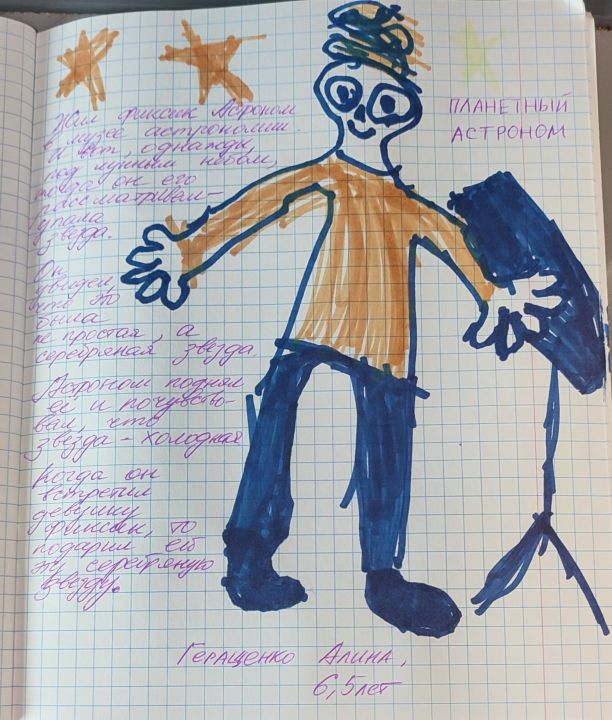 Жил фиксик Астроном
в музее астрономии.
И вот, однажды,
под лунным небом,
когда он его
рассматривал -
упала
звезда.
Он
увидел,
что это
была
не простая, а
серебряная звезда.
Астроном поднял
её и почувство-
вал, что
звезда - холодная
Когда он
встретил
девушку
фиксик, то
подарил ей
эту серебряную
звезду.
ПЛАНЕТНЫЙ
АСТРОНОМ
Геращенко Алина,
6,5 лет